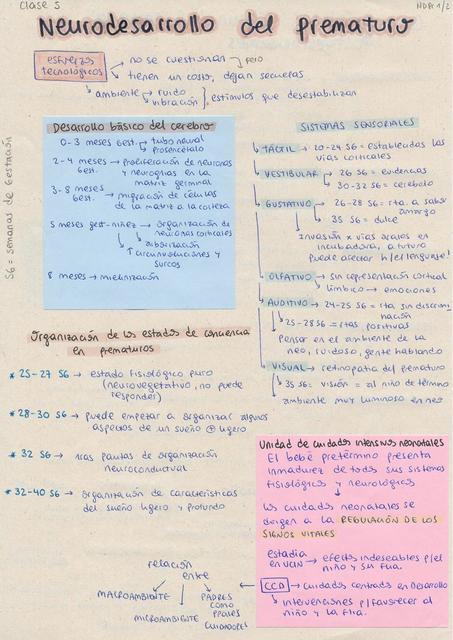 Clase 5
NDPr 1/2
Neurodesarrollo del prematuro
esfuerzos tecnológicos → no se cuestionan pero
→ tienen un costo, dejan secuelas
→ ambiente → ruido
vibración } estímulos que desestabilizan
SG = semanas de Gestación
Desarrollo básico del cerebro
0-3 meses Gest. → tubo neural
→ prosencéfalo
2-4 meses → proliferación de neuronas
Gest. y neuroglias en la
matriz germinal
3-8 meses
Gest. → migración de células
de la matriz a la corteza
5 meses gest-niñez → organización de
neuronas corticales
↑ circunvoluciones y
surcos
8 meses → mielinización
SISTEMAS SENSORIALES
TÁCTIL → 20-24 SG = establecidas las
vías corticales
VESTIBULAR → 26 SG = evidencias
30-32 SG = cerebelo
GUSTATIVO → 26-28 SG = rta. a sabor
amargo
35 SG = dulce
Invasión x vías orales en
incubadora, a futuro
puede afectar h/el lenguaje!
OLFATIVO → sin representación cortical
límbico → emociones
AUDITIVO → 24-25 SG = rta sin discrimi
nación
25-28SG = rtas positivas
Pensar en el ambiente de la
neo, ruidoso, gente hablando
VISUAL → retinopatía del prematuro
35 SG = visión = al niño de término
ambiente muy luminoso en neo
Organización de los estados de conciencia
en prematuros
* 25-27 SG → estado fisiológico puro
(neurovegetativo, no puede
responder)
* 28-30 SG → puede empezar a organizar algunos
aspectos de un sueño ⊕ ligero
* 32 SG → 1ras pautas de organización
neuroconductual
* 32-40 SG → organización de características
del sueño ligero y profundo
Unidad de cuidados intensivos neonatales
El bebé pretérmino presenta
inmadurez de todos sus sistemas
fisiológicos y neurológicos
los cuidados neonatales se
dirigen a la REGULACIÓN DE LOS
SIGNOS VITALES
estadía
en UCIN → efectos indeseables p/el
niño y su flia.
CCD → cuidados centrados en Desarrollo
→ intervenciones p/favorecer al
niño y la flia.
relación
entre
MACROAMBIENTE
MICROAMBIENTE
PADRES
COMO
CUIDADORES